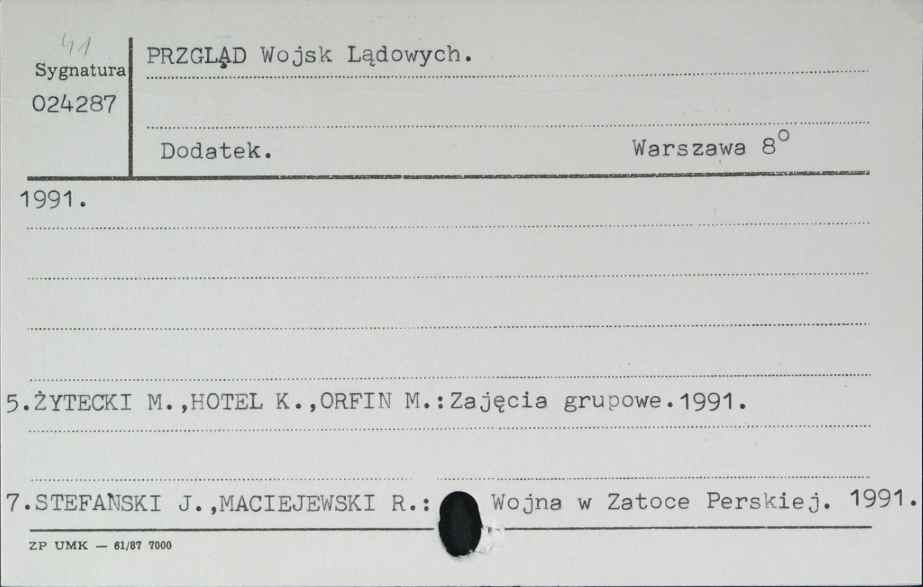 41
Sygnatura
024287
PRZGLĄD Wojsk Lądowych.
Dodatek. Warszawa 8°
1991.
5.ŻYTECKI M.,HOTEL K.,ORFIN M.:Zajęcia grupowe.1991.
7.STEFAŃSKI J.,MACIEJEWSKI R.: Wojna w Zatoce Perskiej. 1991.
ZP UMK — 61/87 7000